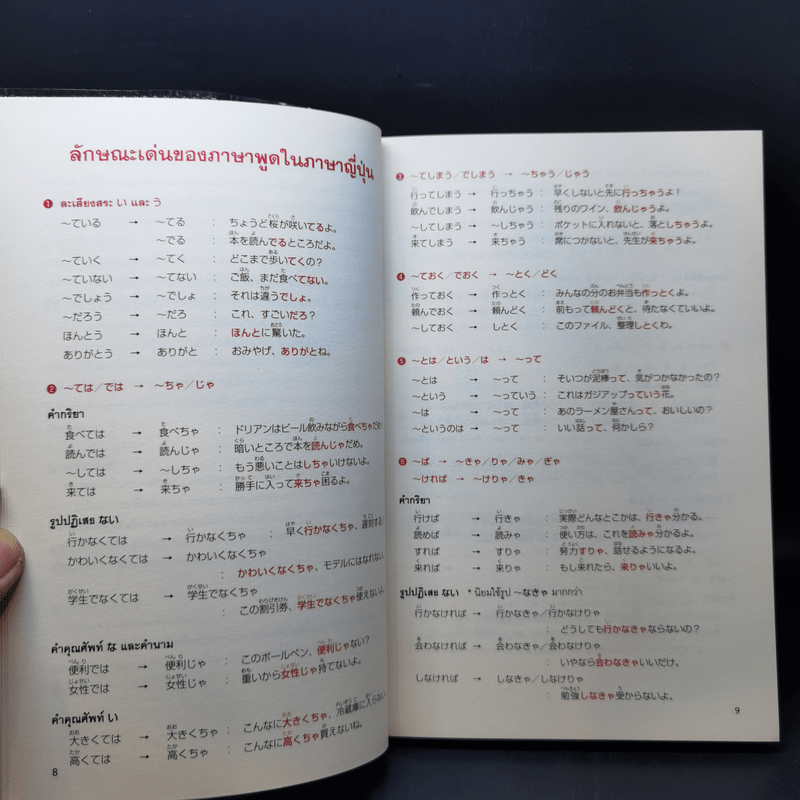 ลักษณะเด่นของภาษาพูดในภาษาญี่ปุ่น
❶ ละเสียงสระ い และ う
～ている → ～てる : ちょうど桜が咲いてるよ。
～でる : 本を読んでるところだよ。
～ていく → ～てく : どこまで歩いてくの？
～ていない → ～てない : ご飯、まだ食べてない。
～でしょう → ～でしょ : それは違うでしょ。
～だろう → ～だろ : これ、すごいだろ？
ほんとう → ほんと : ほんとに驚いた。
ありがとう → ありがと : おみやげ、ありがとね。
❷ ～ては／では → ～ちゃ／じゃ
คำกริยา
食べては → 食べちゃ : ドリアンはビール飲みながら食べちゃだめ！
読んでは → 読んじゃ : 暗いところで本を読んじゃだめ。
～しては → ～しちゃ : もう悪いことはしちゃいけないよ。
来ては → 来ちゃ : 勝手に入って来ちゃ困るよ。
รูปปฏิเสธ ない
行かなくては → 行かなくちゃ : 早く行かなくちゃ、遅刻する
かわいくなくては → かわいくなくちゃ
: かわいくなくちゃ、モデルにはなれない
学生でなくては → 学生でなくちゃ
: この割引券、学生でなくちゃ使えないよ
คำคุณศัพท์ な และคำนาม
便利では → 便利じゃ : このボールペン、便利じゃない？
女性では → 女性じゃ : 重いから女性じゃ持てないよ。
คำคุณศัพท์ い
大きくては → 大きくちゃ : こんなに大きくちゃ、冷蔵庫に入らない
高くては → 高くちゃ : こんなに高くちゃ買えないね。
8
❸ ～てしまう／でしまう → ～ちゃう／じゃう
行ってしまう → 行っちゃう : 早くしないと先に行っちゃうよ！
飲んでしまう → 飲んじゃう : 残りのワイン、飲んじゃうよ。
～してしまう → ～しちゃう : ポケットに入れないと、落としちゃうよ。
来てしまう → 来ちゃう : 席につかないと、先生が来ちゃうよ。
❹ ～ておく／でおく → ～とく／どく
作っておく → 作っとく : みんなの分のお弁当も作っとくよ。
頼んでおく → 頼んどく : 前もって頼んどくと、待たなくていいよ。
～しておく → しとく : このファイル、整理しとくわ。
❺ ～とは／という／は → ～って
～とは → ～って : そいつが泥棒って、気がつかなかったの？
～という → ～っていう : これはガジアップっていう花。
～は → ～って : あのラーメン屋さんって、おいしいの？
～というのは → ～って : いい話って、何かしら？
❻ ～ば → ～きゃ／りゃ／みゃ／ぎゃ
～ければ → ～けりゃ／きゃ
คำกริยา
行けば → 行きゃ : 実際どんなとこかは、行きゃ分かる。
読めば → 読みゃ : 使い方は、これを読みゃ分かるよ。
すれば → すりゃ : 努力すりゃ、話せるようになるよ。
来れば → 来りゃ : もし来れたら、来りゃいいよ。
รูปปฏิเสธ ない * นิยมใช้รูป ～なきゃ มากกว่า
行かなければ → 行かなきゃ／行かなけりゃ
: どうしても行かなきゃならないの？
会わなければ → 会わなきゃ／会わなけりゃ
: いやなら会わなきゃいいだけ。
しなければ → しなきゃ／しなけりゃ
: 勉強しなきゃ受からないよ。
9